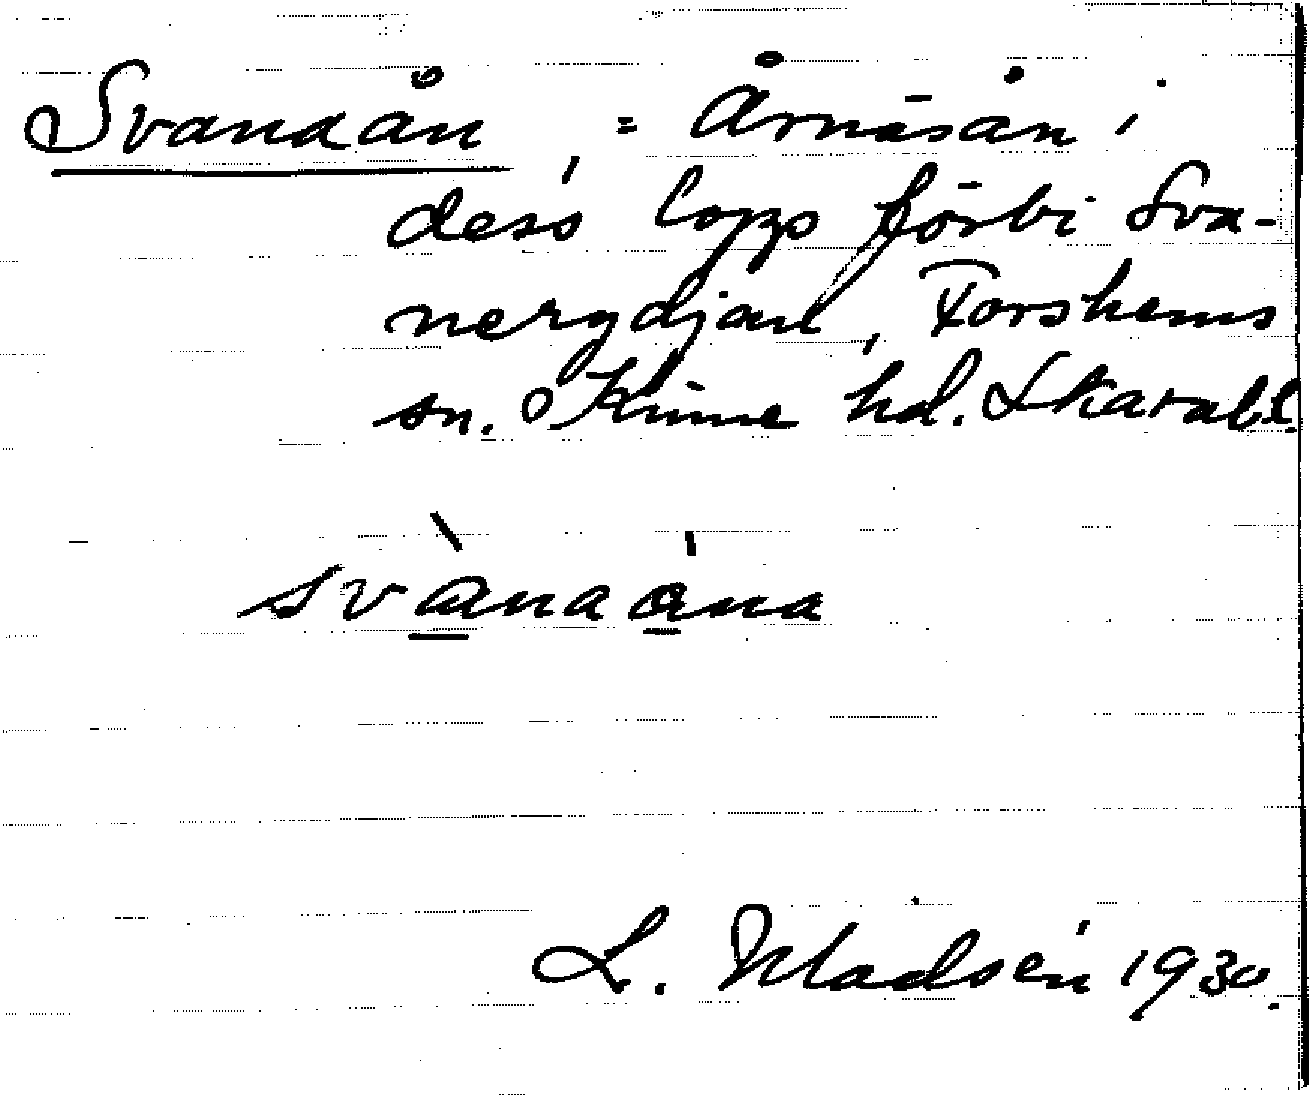 Svanaån = Årnäsån i
dess lopp förbi Sva-
nerydjan, Forshems
sn. Kinne hd. Skarab.l.
svànaána
L. Madsén 1930.